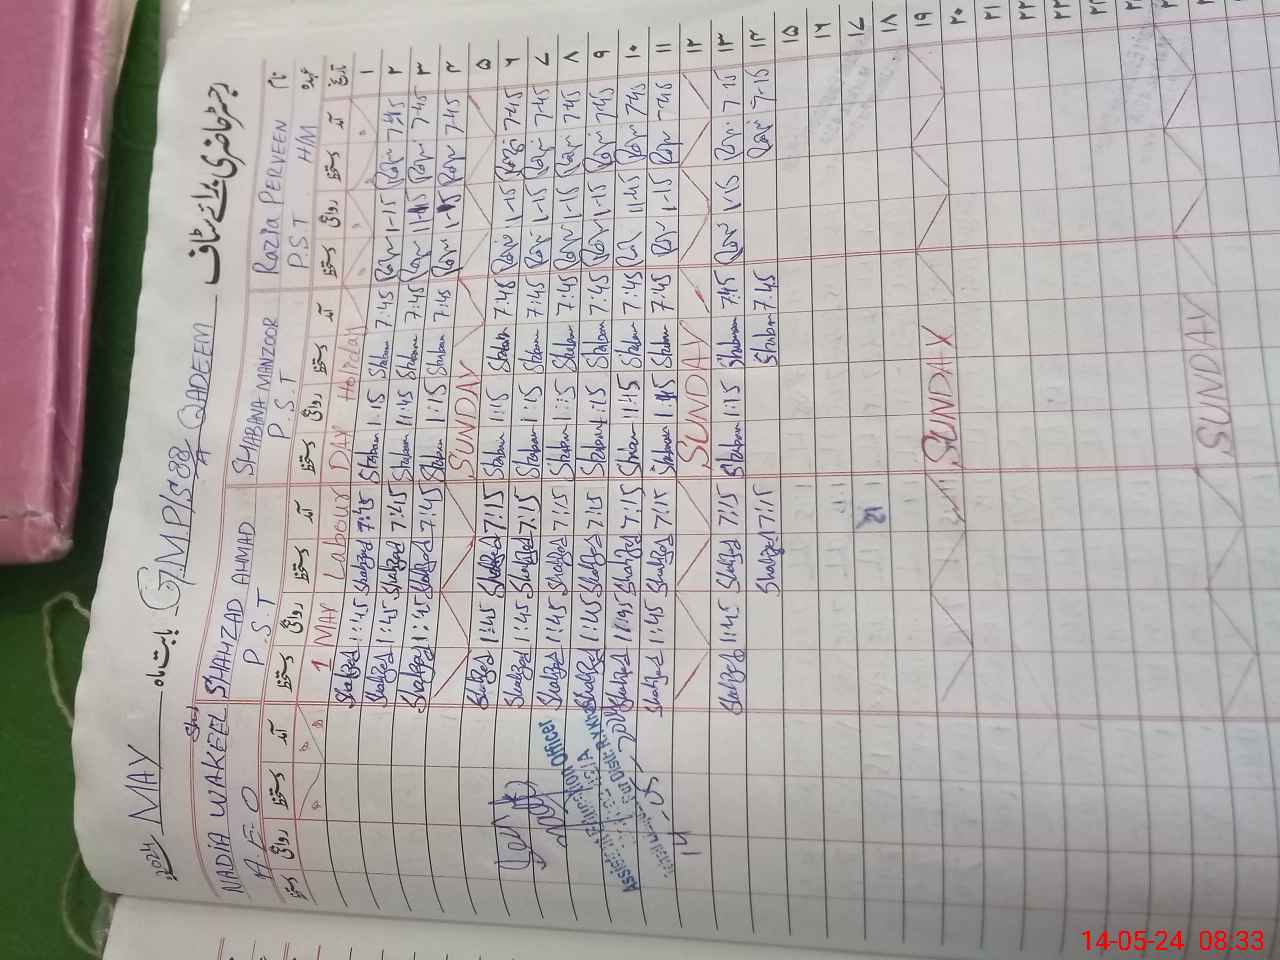 2024 MAY بابت ماہ G/M.P/S 88 QADEEM رجسٹر حاضری برائے سٹاف
NADIA WAKEEL SHAHZAD AHMAD SHABANA MANZOOR RAZIA PERVEEN نام
A.E.O P.S.T P.S.T P.S.T. H/M عہدہ
دستخط روانگی دستخط آمد دستخط روانگی دستخط آمد دستخط روانگی دستخط آمد دستخط روانگی دستخط آمد تاریخ
1 MAY Labour DAY Holiday ۱
Shahzad 1:45 Shahzad 7:45 Shaban 1:15 Shaban 7:45 1-15 7:45 ۲
Shahzad 1:45 Shahzad 7:45 Shaban 11:45 Shaban 7:45 11-45 7:45 ۳
Shahzad 11:45 Shahzad 7:45 Shaban 1:15 Shaban 7:45 1-15 7:45 ۴
SUNDAY ۵
Shahzad 1:45 Shahzad 7:15 Shaban 1:15 Shaban 7:45 1-15 7:45 ۶
Shahzad 1:45 Shahzad 7:15 Shaban 1:15 Shaban 7:45 1-15 7:45 ۷
Shahzad 1:45 Shahzad 7:15 Shaban 1:15 Shaban 7:45 1-15 7:45 ۸
Shahzad 1:45 Shahzad 7:15 Shaban 1:15 Shaban 7:45 1-15 7:45 ۹
Shahzad 11:45 Shahzad 7:15 Shaban 11:45 Shaban 7:45 11-45 7:45 ۱۰
Shahzad 1:45 Shahzad 7:15 Shaban 1:15 Shaban 7:45 1-15 7:45 ۱۱
SUNDAY ۱۲
Shahzad 1:45 Shahzad 7:15 Shaban 1:15 Shaban 7:45 1-15 7-15 ۱۳
Shahzad 7:15 Shaban 7.45 7-15 ۱۴
۱۵
۱۶
۱۷
۱۸
SUNDAY ۱۹
۲۰
۲۱
۲۲
۲۳
SUNDAY
Officer
14-5-2024
14-05-24 08:33